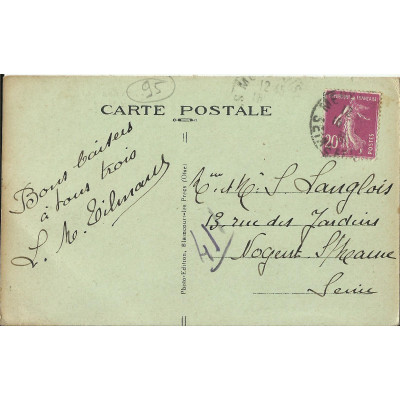 95
CARTE POSTALE
REPUBLIQUE FRANÇAISE
20
POSTES
Bons baisers
à tous trois
L. M. Tilmant
Mme et M. S. Langlois
13 rue des Jardins
Nogent S/Marne
Seine
Photo-Edition, Blancour-les Preçy (Oise)